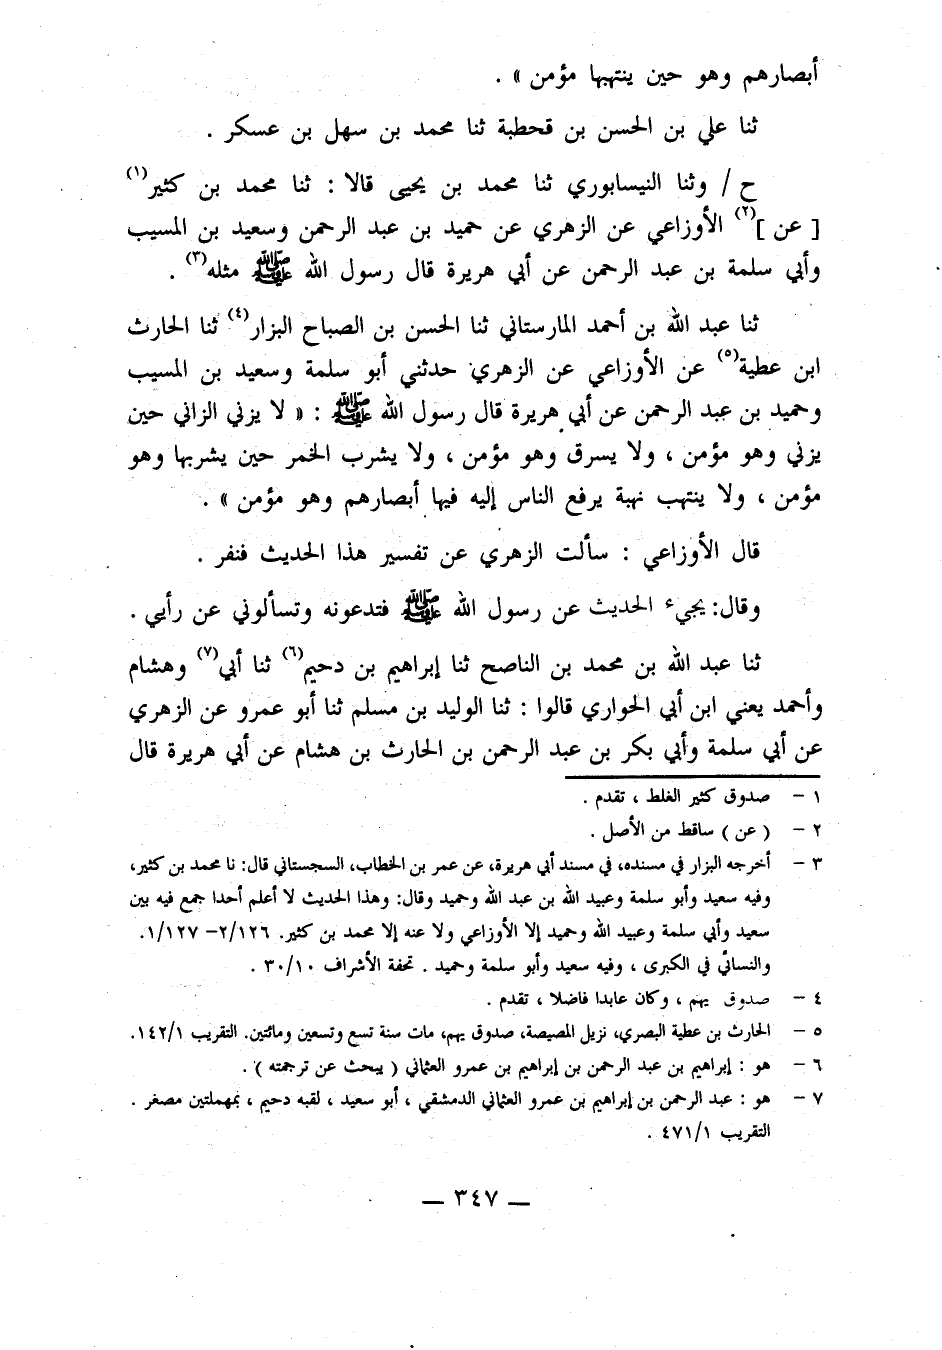 أبصارهم وهو حين ينتهبها مؤمن » .
ثنا علي بن الحسن بن قحطبة ثنا محمد بن سهل بن عسكر .
ح / وثنا النيسابوري ثنا محمد بن يحيى قالا : ثنا محمد بن كثير(١)
[ عن ](٢) الأوزاعي عن الزهري عن حميد بن عبد الرحمن وسعيد بن المسيب
وأبي سلمة بن عبد الرحمن عن أبي هريرة قال رسول الله ﷺ مثله(٣) .
ثنا عبد الله بن أحمد المارستاني ثنا الحسن بن الصباح البزار(٤) ثنا الحارث
ابن عطية(٥) عن الأوزاعي عن الزهري حدثني أبو سلمة وسعيد بن المسيب
وحميد بن عبد الرحمن عن أبي هريرة قال رسول الله ﷺ : « لا يزني الزاني حين
يزني وهو مؤمن ، ولا يسرق وهو مؤمن ، ولا يشرب الخمر حين يشربها وهو
مؤمن ، ولا ينتهب نهبة يرفع الناس إليه فيها أبصارهم وهو مؤمن » .
قال الأوزاعي : سألت الزهري عن تفسير هذا الحديث فنفر .
وقال: يجيء الحديث عن رسول الله ﷺ فتدعونه وتسألوني عن رأيي .
ثنا عبد الله بن محمد بن الناصح ثنا إبراهيم بن دحيم(٦) ثنا أبي(٧) وهشام
وأحمد يعني ابن أبي الحواري قالوا : ثنا الوليد بن مسلم ثنا أبو عمرو عن الزهري
عن أبي سلمة وأبي بكر بن عبد الرحمن بن الحارث بن هشام عن أبي هريرة قال
١ – صدوق كثير الغلط ، تقدم .
٢ – ( عن ) ساقط من الأصل .
٣ – أخرجه البزار في مسنده، في مسند أبي هريرة، عن عمر بن الخطاب، السجستاني قال: نا محمد بن كثير،
وفيه سعيد وأبو سلمة وعبيد الله بن عبد الله وحميد وقال: وهذا الحديث لا أعلم أحدا جمع فيه بين
سعيد وأبي سلمة وعبيد الله وحميد إلا الأوزاعي ولا عنه إلا محمد بن كثير. ٢/١٢٦– ١/١٢٧.
والنسائي في الكبرى ، وفيه سعيد وأبو سلمة وحميد . تحفة الأشراف ٣٠/١٠ .
٤ – صدوق يهم ، وكان عابدا فاضلا ، تقدم .
٥ – الحارث بن عطية البصري، نزيل المصيصة، صدوق يهم، مات سنة تسع وتسعين ومائتين. التقريب ١٤٢/١.
٦ – هو : إبراهيم بن عبد الرحمن بن إبراهيم بن عمرو العثماني ( يبحث عن ترجمته ) .
٧ – هو : عبد الرحمن بن إبراهيم بن عمرو العثماني الدمشقي ، أبو سعيد ، لقبه دحيم ، بمهملتين مصغر .
التقريب ٤٧١/١ .
— ٣٤٧ —